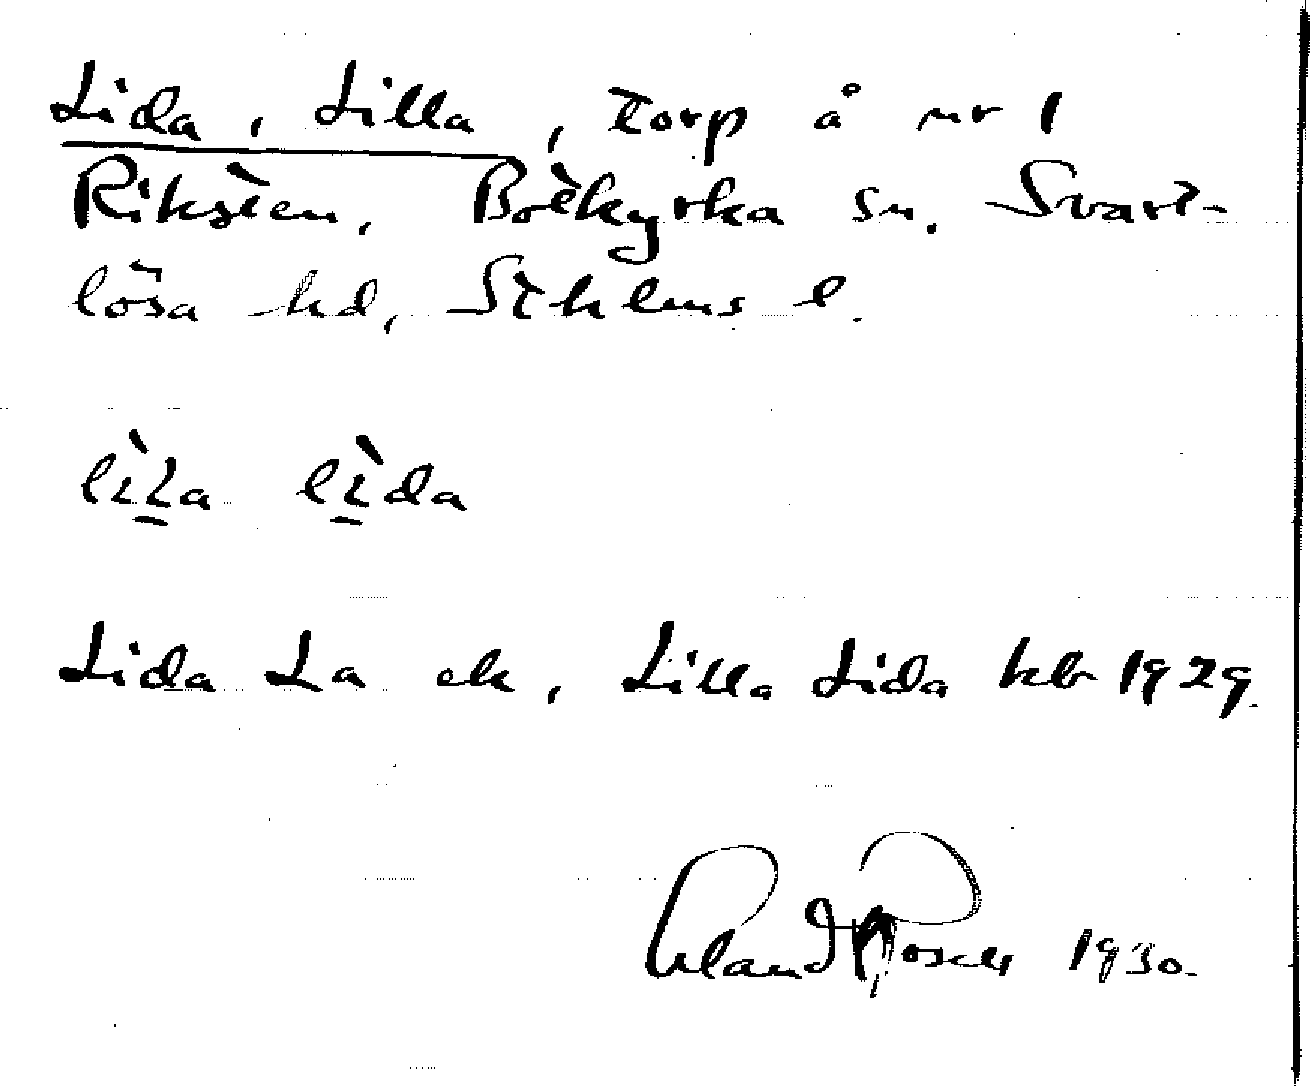 Lida, Lilla, torp å nr 1
Riksten, Botkyrka sn, Svart-
lösa hd, Sthlms l.
lìla lìda
Lida La ek, Lilla Lida kb 1929.
Erland Rosell 1930.